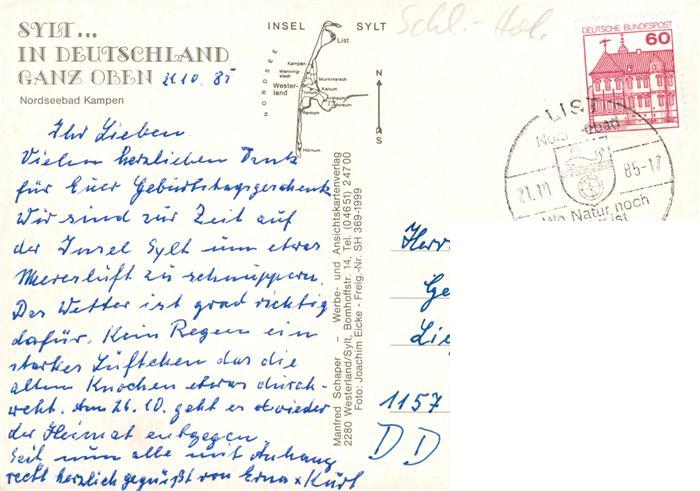 SYLT...
IN DEUTSCHLAND
GANZ OBEN 21.10. 85
Nordseebad Kampen
Ihr Lieben.
Vielen herzlichen Dank
für Euer Geburtstagsgeschenk
Wir sind zur Zeit auf
der Insel Sylt um etwas
Meeresluft zu schnuppern.
Das Wetter ist grad richtig
dafür. Kein Regen ein
starkes Lüftchen das die
alten Knochen etwas durch-
weht. Am 26.10. geht es wieder
der Heimat entgegen
Seit nun alle mit Anhang
recht herzlich gegrüßt von Erna + Kurt
INSEL SYLT
NORDSEE
List
Kampen
Wenning-
stadt
Wester-
land
Munkmarsch
Keitum
Archsum
Morsum
Rantum
Hörnum
N
S
Manfred Schaper – Werbe- und Ansichtskartenverlag
2280 Westerland/Sylt, Bomhoffstr. 14, Tel. (04651) 2 47 00
Foto: Joachim Eicke - Freig.-Nr. SH 369-1999
Schl.-Hol.
DEUTSCHE BUNDESPOST
60
LIST
21.10 85-17
Wo Natur noch
ist
Herr
Ge
Lie
1157
DD